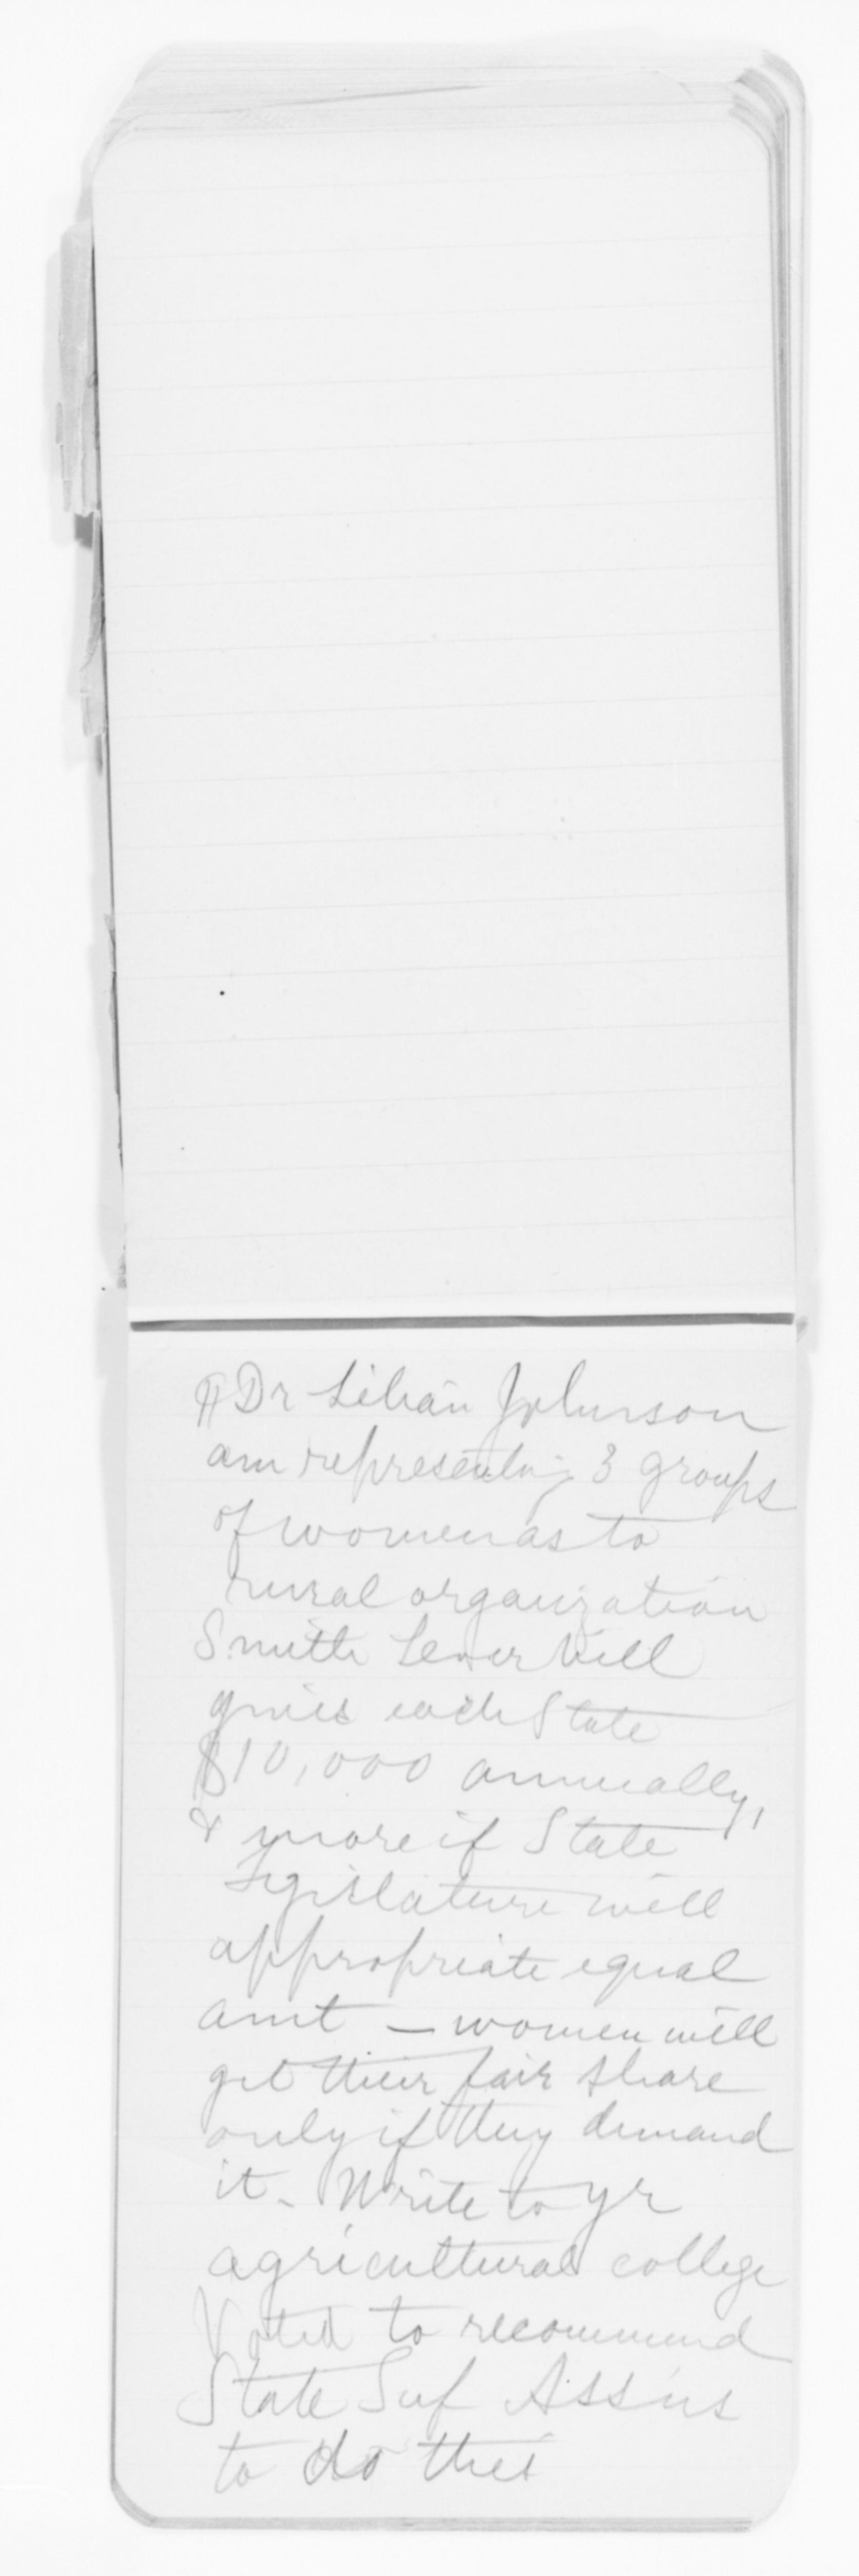 ¶ Dr Lilian Johnson
am representing 3 groups
of women as to
rural organization
Smith Lever bill
gives each State
$10,000 annually,
& more if State
Legislature will
appropriate equal
amt – women will
get their fair share
only if they demand
it. Write to yr
agricultural college
Voted to recommend
State Suf Ass'ns
to do this